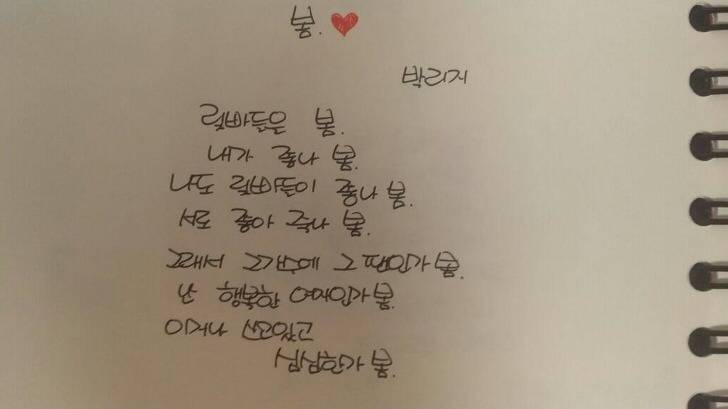 봄. ♥
박리지
럽바들은 봄.
내가 좋나 봄.
나도 럽바들이 좋나 봄.
서로 좋아 죽나 봄.
그래서 그가수에 그 팬인가 봄.
난 행복한 여자인가 봄.
이거나 쓰고있고
심심한가 봄.